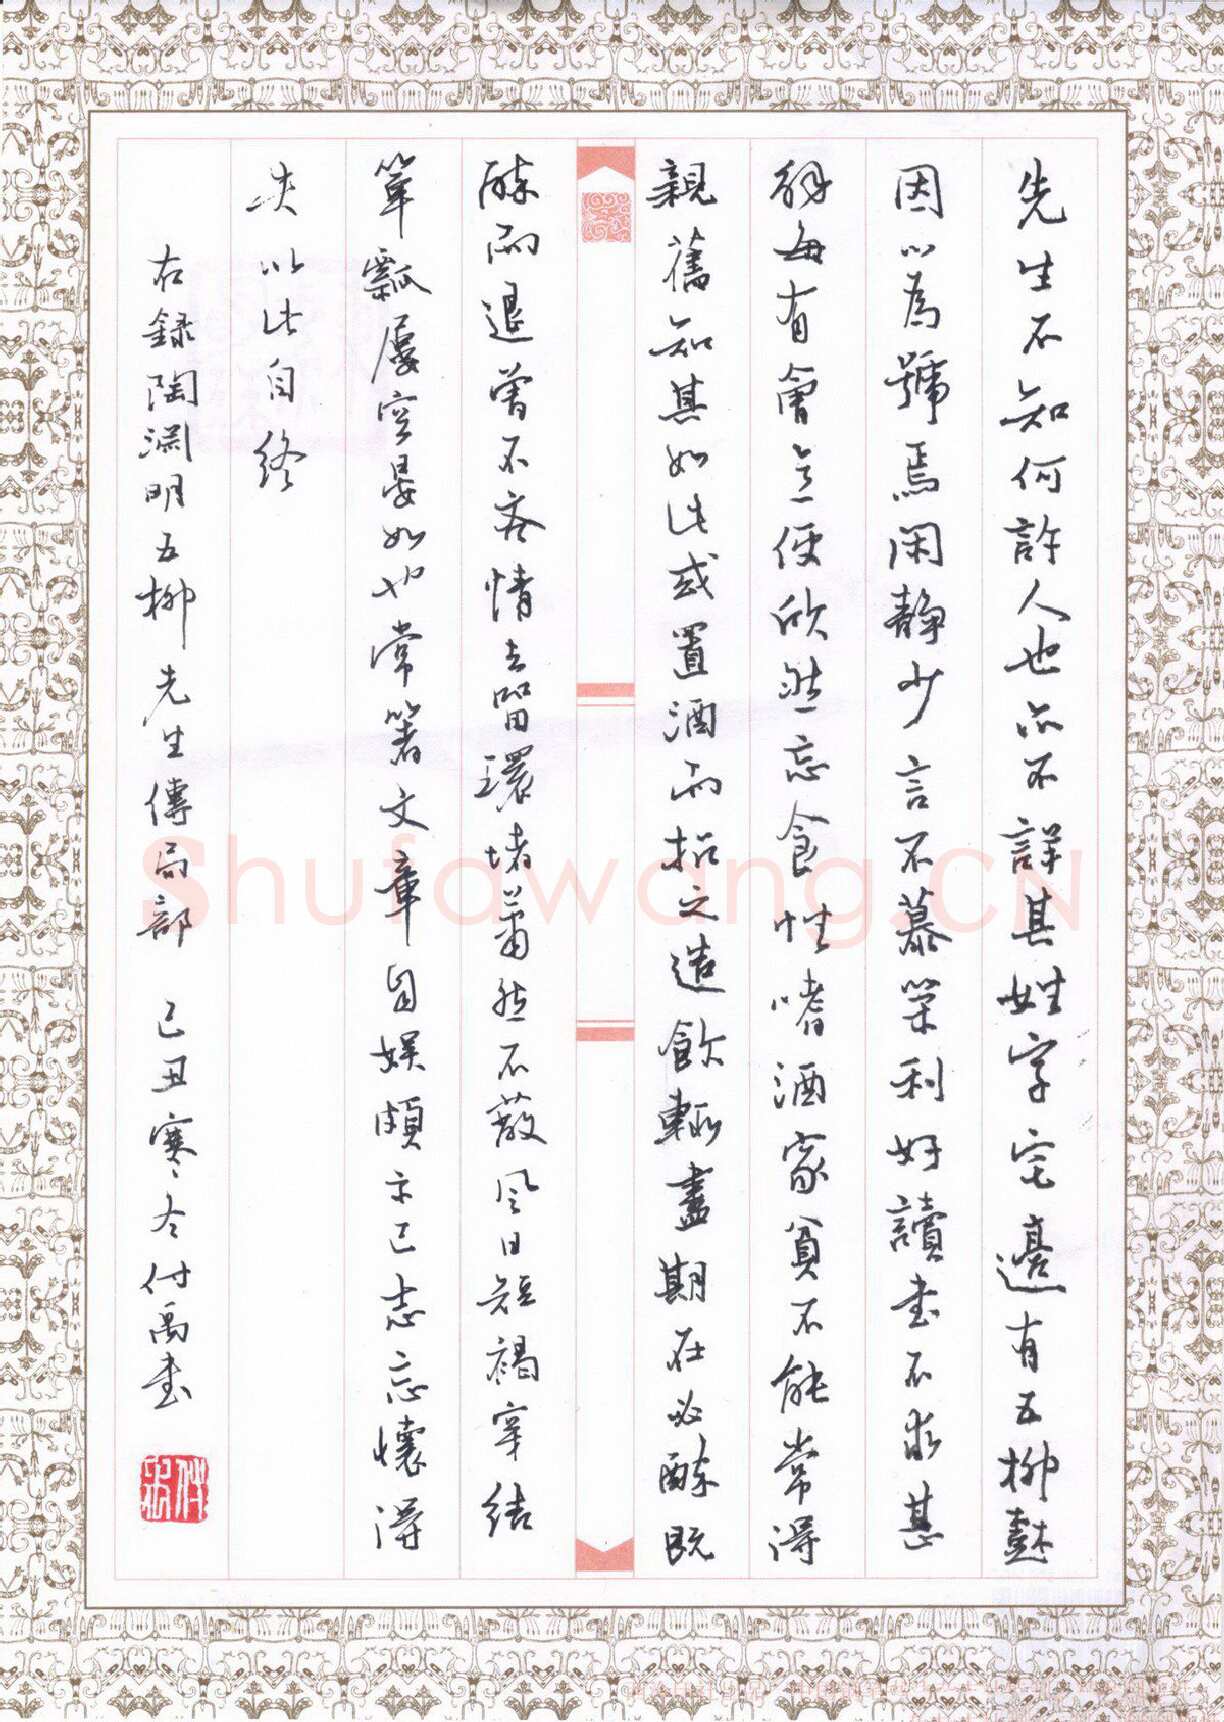 先生不知何許人也亦不詳其姓字宅邊有五柳樹
因以為號焉閑靜少言不慕榮利好讀書不求甚
解每有會意便欣然忘食性嗜酒家貧不能常得
親舊知其如此或置酒而招之造飲輒盡期在必醉既
醉而退曾不吝情去留環堵蕭然不蔽風日短褐穿結
簞瓢屢空晏如也常箸文章自娛頗示己志忘懷得
失以此自終
右録陶淵明五柳先生傳局部 己丑寒冬付禹書
Shufawang.CN